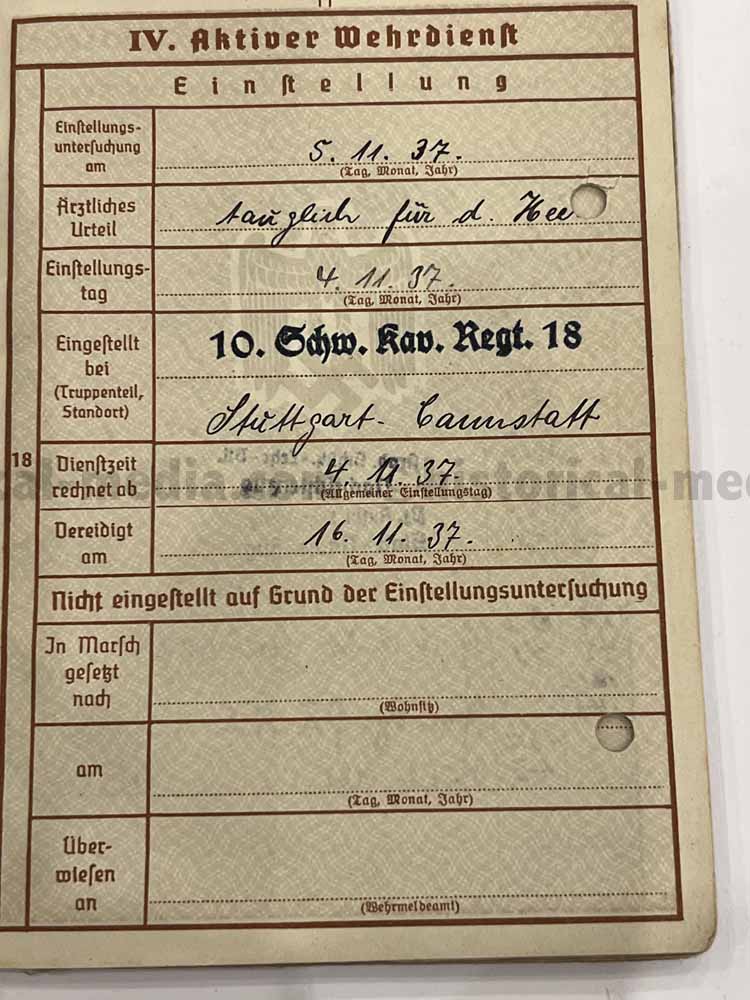 IV. Aktiver Wehrdienst
Einstellung
Einstellungs-
untersuchung
am
5. 11. 37.
(Tag, Monat, Jahr)
Ärztliches
Urteil
tauglich für d. Hee
Einstellungs-
tag
4. 11. 37.
(Tag, Monat, Jahr)
Eingestellt
bei
(Truppenteil,
Standort)
10. Schw. Kav. Regt. 18
Stuttgart- Cannstatt
18
Dienstzeit
rechnet ab
4. 11. 37.
(Allgemeiner Einstellungstag)
Vereidigt
am
16. 11. 37.
(Tag, Monat, Jahr)
Nicht eingestellt auf Grund der Einstellungsuntersuchung
In Marsch
gesetzt
nach
(Wohnsitz)
am
(Tag, Monat, Jahr)
Über-
wiesen
an
(Wehrmeldeamt)